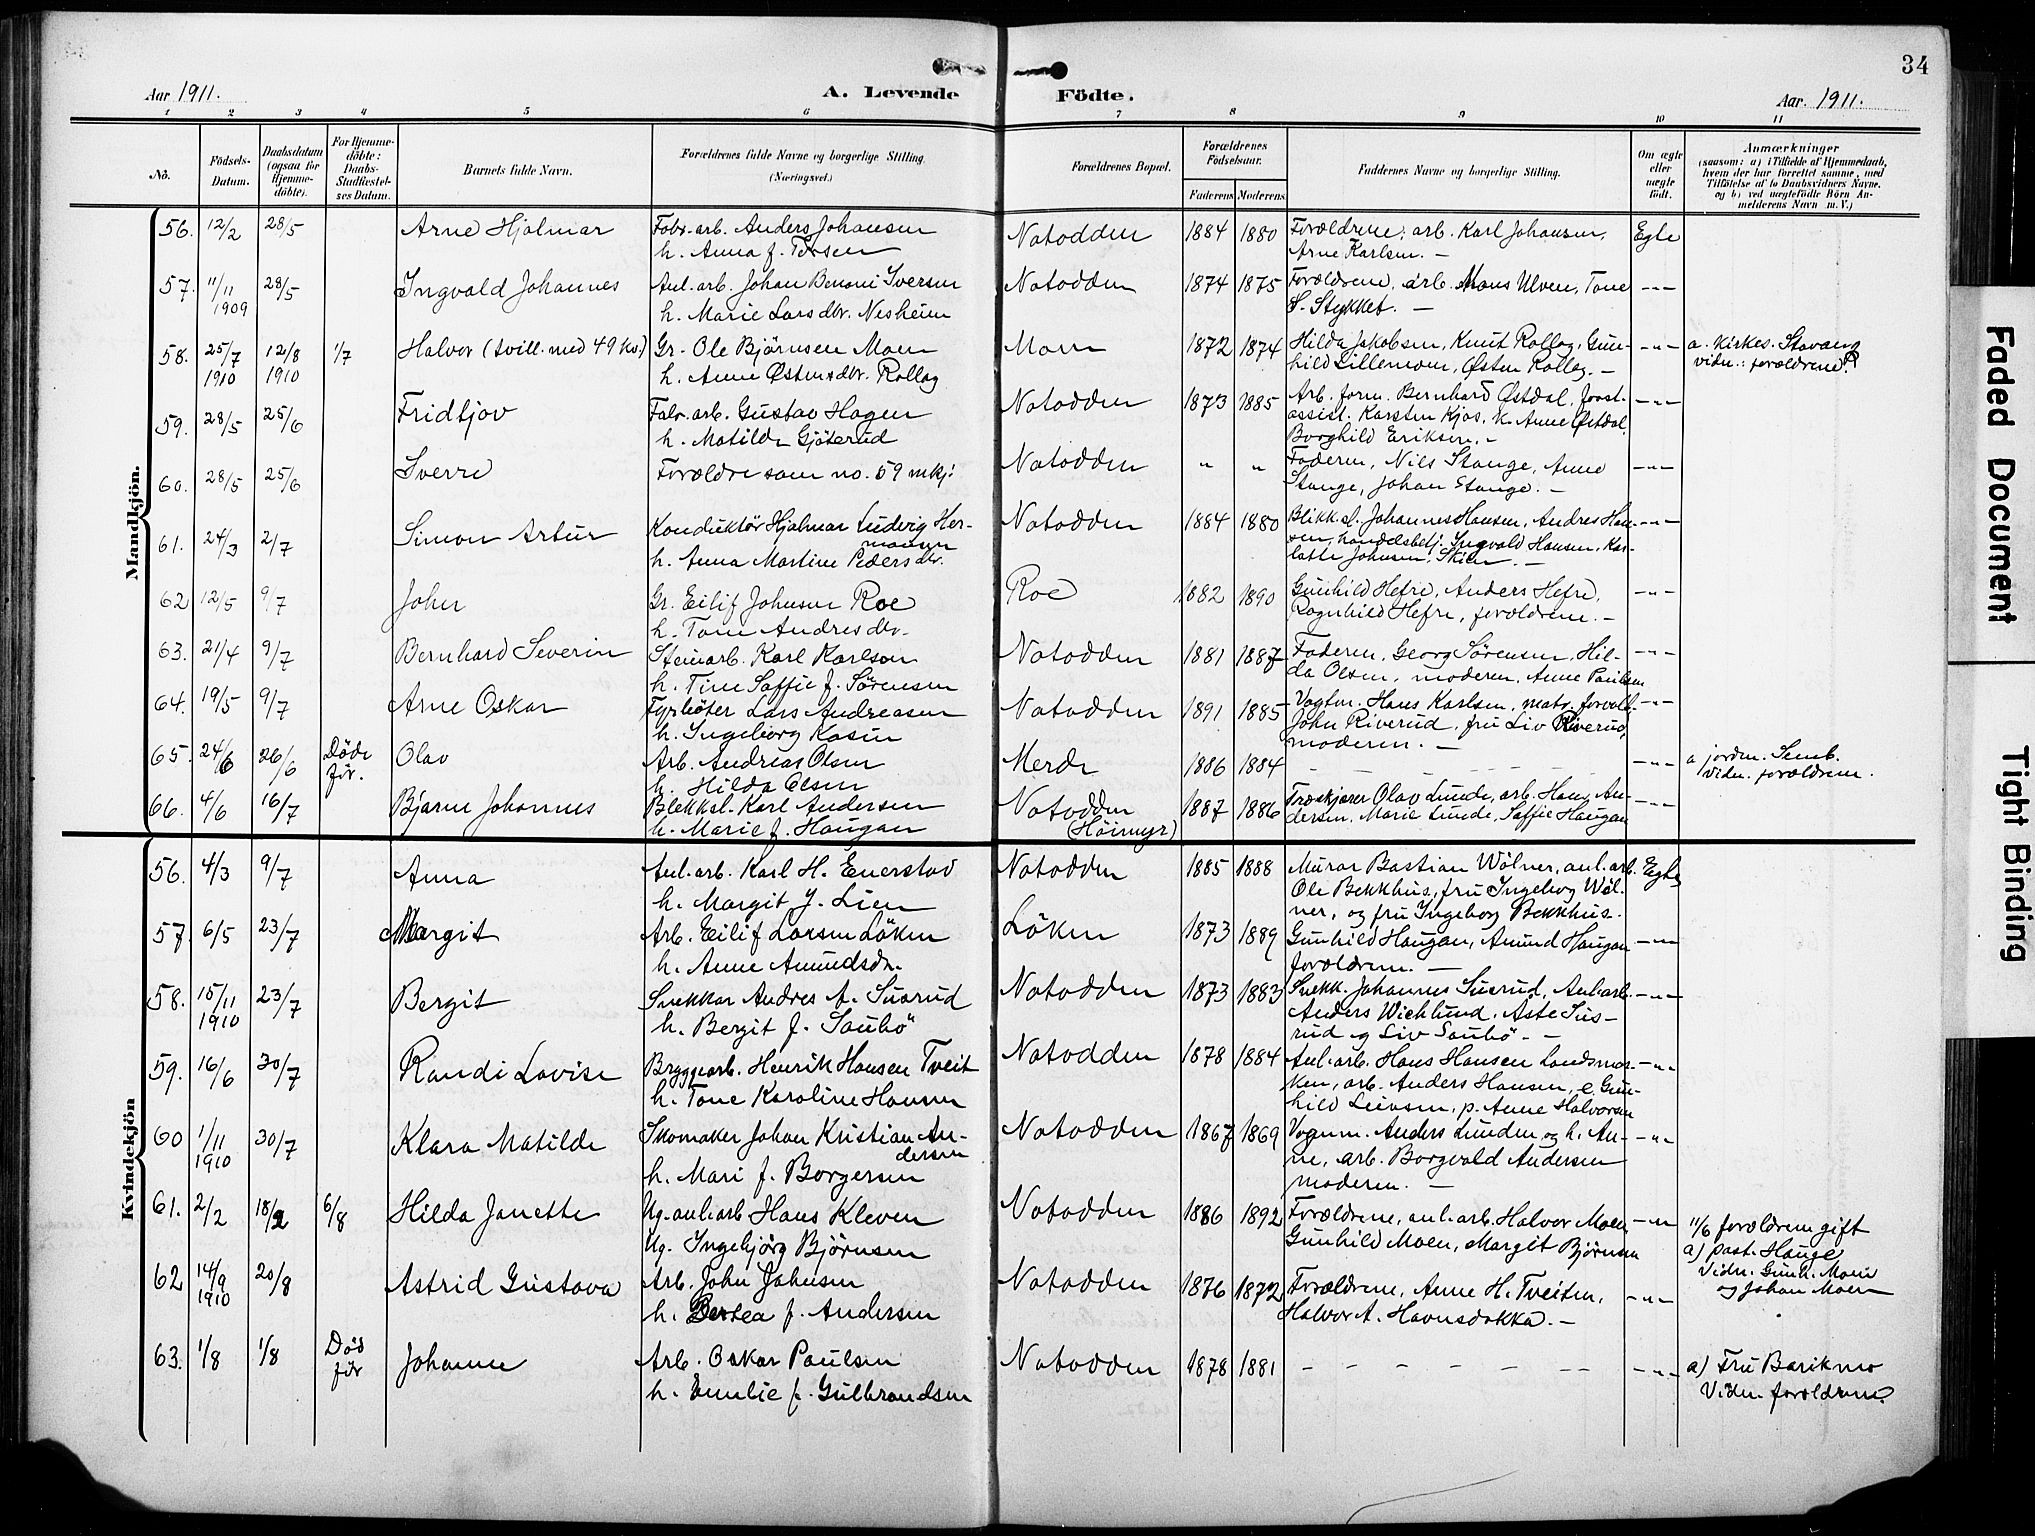 34
Aar 1911.
A. Levende Födte.
Aar. 1911.
1 2 3 4 5 6 7 8 9 10 11
No.
Födsels-Datum.
Daabsdatum (ogsaa for Hjemme-döbte).
For Hjemme-döbte: Daabs-Stadfæstel-ses Datum.
Barnets fulde Navn.
Forældrenes fulde Navne og borgerlige Stilling. (Næringsvei.)
Forældrenes Bopæl.
Forældrenes Födselsaar.
Faderens Moderens
Faddernes Navne og borgerlige Stilling.
Om ægte eller uægte födt.
Anmærkninger
(saasom: a) i Tilfælde af Hjemmedaab, hvem der har forrettet samme, med Tilföielse af to Daabsvidners Navne, og b) ved uægtefödte Börn An-melderens Navn m. V.)
Mandkjön.
56. 12/2 28/5 Arne Hjalmar Fabr. arb. Anders Johansen Notodden 1884 1880 Forældrene, arb. Karl Johansen, Egte
h. Anna f. Torsen Arne Karlsen. —
57. 11/11 1909 28/5 Ingvald Johannes Anl. arb. Johan Benoni Iversen Notodden 1874 1875 Forældrene, arb. Mons Ulven, Tone -"-
h. Marie Larsdtr. Nesheim S. Stykket. —
58. 25/7 1910 12/8 1910 1/7 Halvor (tvill. med 49 kv.) Gr. Ole Björnsen Moen Moen 1872 1874 Hilda Jakobsen, Knut Rollag, Gun- -"- a. Kirkes. Stavang
h. Anne Østensdtr. Rollag hild Lillemoen, Østen Rollag. — vidn.: forældrene.
59. 28/5 25/6 Fridtjov Fabr. arb. Gustav Hagen Notodden 1873 1885 Arb. form. Bernhard Østdal, -"-
h. Matilde Gjöterud assist. Karsten Kjos, h. Anne Østdal,
Borghild Eriksen. —
60. 28/5 25/6 Sverre Forældre som no. 59 mkj: Notodden " " Faderen, Nils Stange, Anne -"-
Stange, Johan Stange. —
61. 24/3 2/7 Simon Artur Konduktör Hjalmar Ludvig Her-mansen Notodden 1884 1880 Blikksl. Johannes Hansen, Andres Han- -"-
h. Anna Martine Pedersdtr. sen, handelsbetj. Ingvald Hansen, Kar-
lotte Johnsen, Skien. —
62 12/5 9/7 John Gr. Eilif Johnsen Roe Roe 1882 1890 Gunhild Hefre, Anders Hefre, -"-
h. Tone Andresdtr. Ragnhild Hefre, forældrene. —
63. 21/4 9/7 Bernhard Severin Stenarb. Karl Karlsen Notodden 1881 1887 Faderen, Georg Sörensen, Hil- -"-
h. Tine Saffie f. Sörensen da Olsen, moderen, Anne Paulsen
64. 19/5 9/7 Arne Oskar Fyrböter Lars Andreasen Notodden 1891 1885 Vogtm. Hans Karlsen, matr. forvalt. -"-
h. Ingeborg Kasin John Riverud, fru Liv Riverud,
moderen. —
65. 24/6 26/6 Döde för. Olav Arb. Andreas Olsen Merde 1886 1884 — — — — -"- a jordm. Semb.
h. Hilda Olsen vidn. forældrene.
66. 4/6 16/7 Bjarne Johannes Blekksl. Karl Andersen Notodden 1887 1886 Træskjærer Olav Lunde, arb. Hans An- -"-
h. Marie f. Haugan (Höimyr) dersen, Marie Lunde, Saffie Haugan
Kvindekjön
56. 4/3 9/7 Anna Anl. arb. Karl H. Enerstad Notodden 1885 1888 Murar Bastian Wölner, anl. arb. Egte
h. Margit J. Lien Ole Bekkhus, fru Ingeborg Wöl-
ner, og fru Ingeborg Bekkhus.
57. 6/5 23/7 Margit Arb. Eilif Larsen Löken Löken 1873 1889 Gunhild Haugan, Amund Haugan -"-
h. Anne Amundsdr. forældrene. —
58. 15/11 1910 23/7 Bergit Snekkar Andres A. Susrud Notodden 1873 1883 Snekk. Johannes Susrud, Anl. arb. -"-
h. Bergit f. Saubö Anders Wichlund, Aste Sus-
rud og Liv Saubö. —
59. 16/6 30/7 Randi Lovise Bryggearb. Henrik Hansen Tveit Notodden 1878 1884 Anl. arb. Hans Hansen Landsmar- -"-
h. Tone Karoline Hansen ken, arb. Anders Hansen, e. Gun-
hild Leivsen, p. Anne Halvorsen
60 1/11 1910 30/7 Klara Matilde Skomaker Johan Kristian An-dersen Notodden 1867 1869 Vognm. Anders Lunden og h. An- -"-
h. Mari f. Borgersen ne, arb. Borgvald Andersen
moderen. —
61. 2/2 18/2 6/8 Hilda Janette Ug. anl. arb Hans Kleven Notodden 1886 1892 Forældrene, anl. arb. Halvor Moen -"- 11/6 forældrene gift
Ug. Ingebjörg Björnsen Gunhild Moen, Margit Björnsen a) past. Hauge
Vidn. Gunh. Moen
og Johan Moen
62 14/9 1910 20/8 Astrid Gustava Arb. John Johnsen Notodden 1876 1872 Forældrene, Anne H. Tveiten, -"-
h. Bertea f. Andersen Halvor A. Havnsdokka. —
63. 1/8 1/8 Död för Johanne Arb. Oskar Paulsen Notodden 1878 1881 — — — — -"- a) Fru Barikmo
h. Emilie f. Gulbrandsen Vidn. forældrene.
Faded Document
Tight Binding